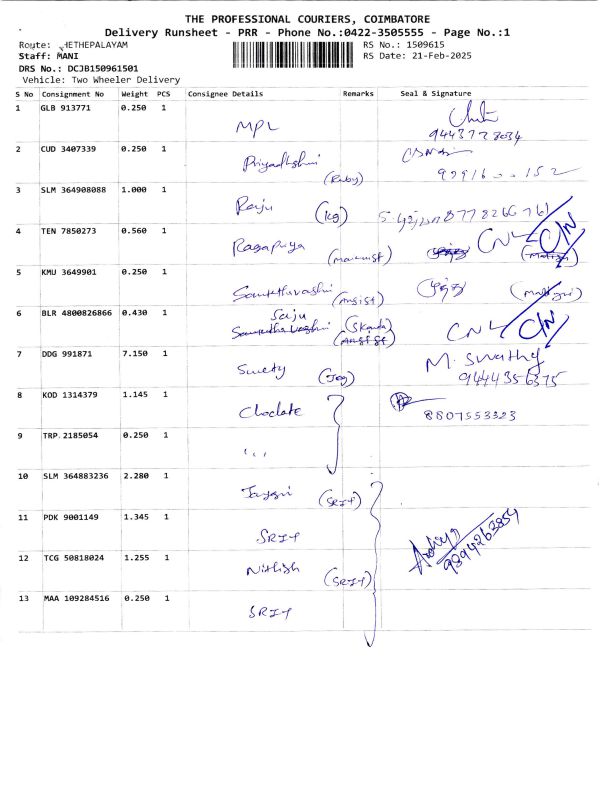 THE PROFESSIONAL COURIERS, COIMBATORE
Delivery Runsheet - PRR - Phone No.:0422-3505555 - Page No.:1
Route: HETHEPALAYAM RS No.: 1509615
Staff: MANI RS Date: 21-Feb-2025
DRS No.: DCJB150961501
Vehicle: Two Wheeler Delivery
S No Consignment No Weight PCS Consignee Details Remarks Seal & Signature
1 GLB 913771 0.250 1 MPL
2 CUD 3407339 0.250 1 (Ruby)
3 SLM 364908088 1.000 1 Raju (kg)
4 TEN 7850273 0.560 1 Ragapriya CNL C/N
5 KMU 3649901 0.250 1
6 BLR 4800826866 0.430 1 Saju (Skanda) CNL C/N
7 DDG 991871 7.150 1 Swety M. Swathy
9444356375
8 KOD 1314379 1.145 1 Choclate
8807553323
9 TRP 2185054 0.250 1
10 SLM 364883236 2.280 1 (SRIT)
11 PDK 9001149 1.345 1 SRIT
9894263854
12 TCG 50818024 1.255 1 Nithish (SRIT)
13 MAA 109284516 0.250 1 SRIT